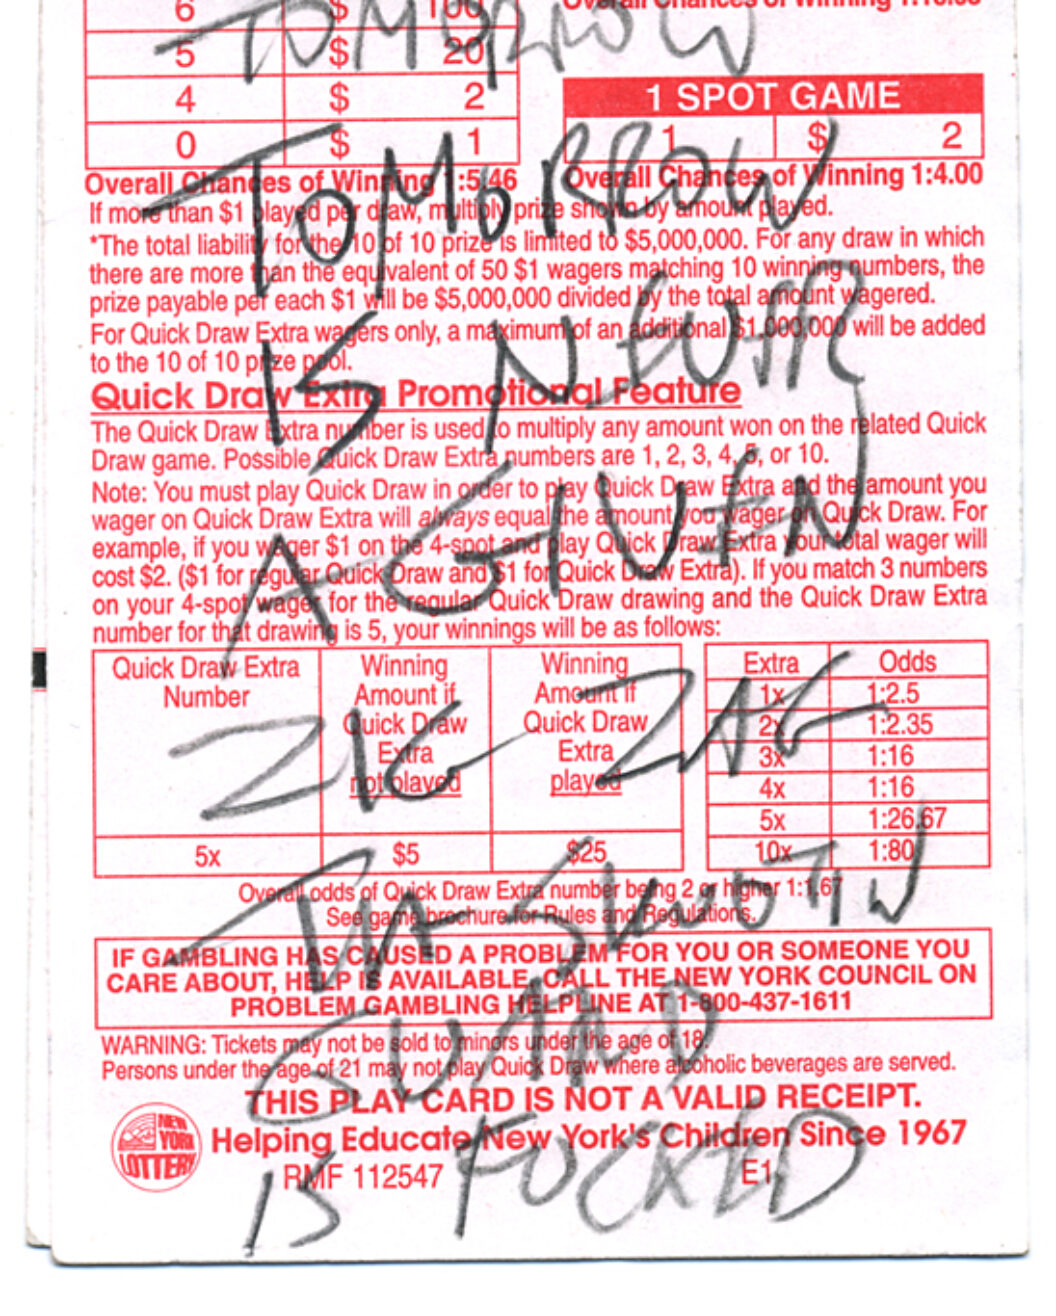 6 $ 100
Overall Chances of Winning
TOMORROW
5 $ 20
4 $ 2
0 $ 1
1 SPOT GAME
1 $ 2
TOMORROW
Overall Chances of Winning 1:5.46
Overall Chances of Winning 1:4.00
If more than $1 played per draw, multiply prize shown by amount played.
*The total liability for the 10 of 10 prize is limited to $5,000,000. For any draw in which
there are more than the equivalent of 50 $1 wagers matching 10 winning numbers, the
prize payable per each $1 will be $5,000,000 divided by the total amount wagered.
For Quick Draw Extra wagers only, a maximum of an additional $1,000,000 will be added
to the 10 of 10 prize pool.
IS NEVER
Quick Draw Extra Promotional Feature
The Quick Draw Extra number is used to multiply any amount won on the related Quick
Draw game. Possible Quick Draw Extra numbers are 1, 2, 3, 4, 5, or 10.
Note: You must play Quick Draw in order to play Quick Draw Extra and the amount you
wager on Quick Draw Extra will always equal the amount you wager on Quick Draw. For
example, if you wager $1 on the 4-spot and play Quick Draw Extra your total wager will
cost $2. ($1 for regular Quick Draw and $1 for Quick Draw Extra). If you match 3 numbers
on your 4-spot wager for the regular Quick Draw drawing and the Quick Draw Extra
number for that drawing is 5, your winnings will be as follows:
A GIVEN
Quick Draw Extra Number
Winning Amount if Quick Draw Extra not played
Winning Amount if Quick Draw Extra played
5x $5 $25
Extra Odds
1x 1:2.5
2x 1:2.35
3x 1:16
4x 1:16
5x 1:26.67
10x 1:80
ZIG ZAG
Overall odds of Quick Draw Extra number being 2 or higher 1:1.67
See game brochure for Rules and Regulations.
THE
IF GAMBLING HAS CAUSED A PROBLEM FOR YOU OR SOMEONE YOU
CARE ABOUT, HELP IS AVAILABLE. CALL THE NEW YORK COUNCIL ON
PROBLEM GAMBLING HELPLINE AT 1-800-437-1611
GUARD
WARNING: Tickets may not be sold to minors under the age of 18.
Persons under the age of 21 may not play Quick Draw where alcoholic beverages are served.
THIS PLAY CARD IS NOT A VALID RECEIPT.
NEW YORK LOTTERY
Helping Educate New York's Children Since 1967
RMF 112547 E1
IS FUCKED